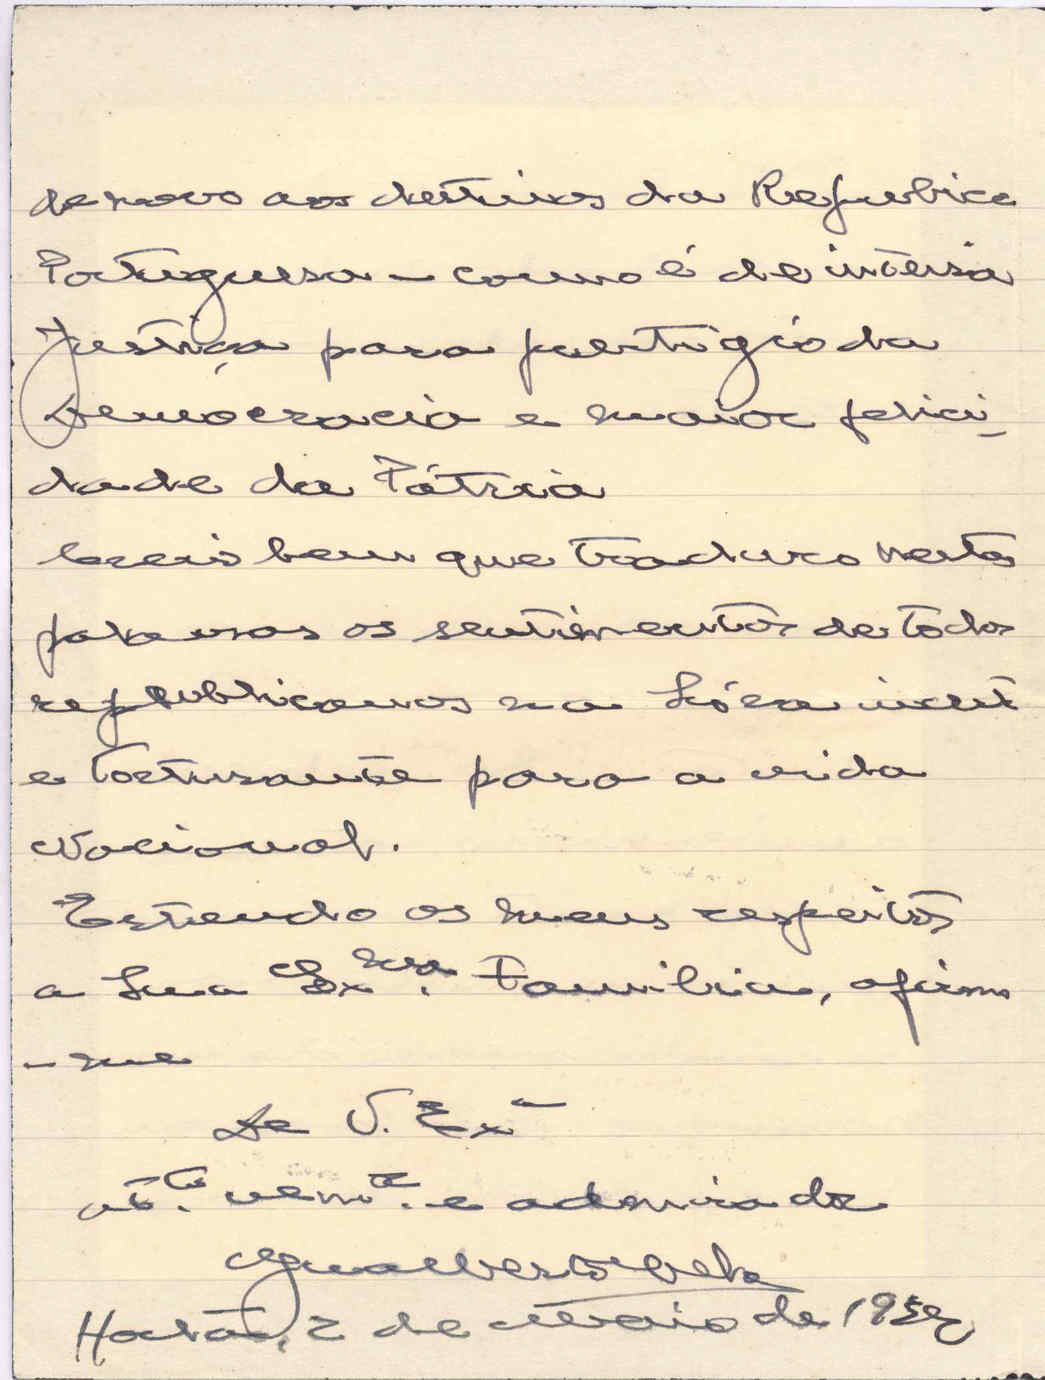 de novo aos destinos da Republica
Portuguesa - como é de inteira
Justiça para prestigio da
Democracia e maior felici-
dade da Pátria
bem que traduzo nestas
palavras os sentimentos de todos
republicanos na hóra
e torturante para a vida
Nacional.
Estendo os meus respeitos
a Sua Exma. Familia, afirmo
-me
De V. Exª
att.º venr. e admirador
2 de Maio de